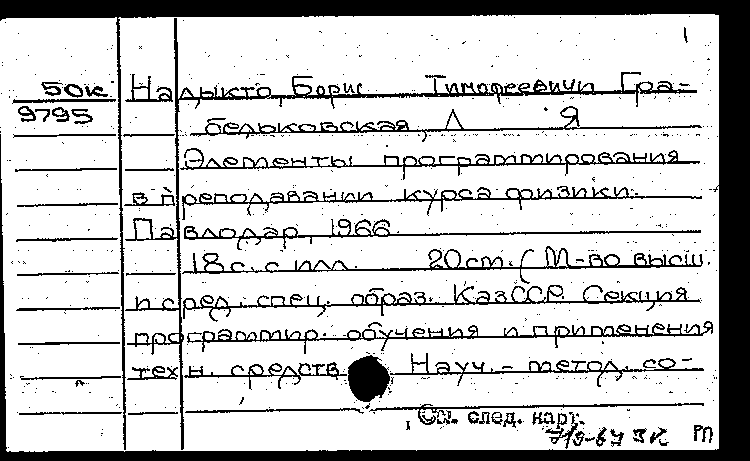 1
50К
9795
Надыкто, Борис Тимофеевич и Гра-
бельковская, Л Я
Элементы программирования
в преподавании курса физики.
Павлодар, 1966
18 с. с илл. 20 см. (М-во высш.
и сред. спец. образ. КазССР. Секция
программир. обучения и применения
техн. средств Науч.-метод. со-
См. след. карт.